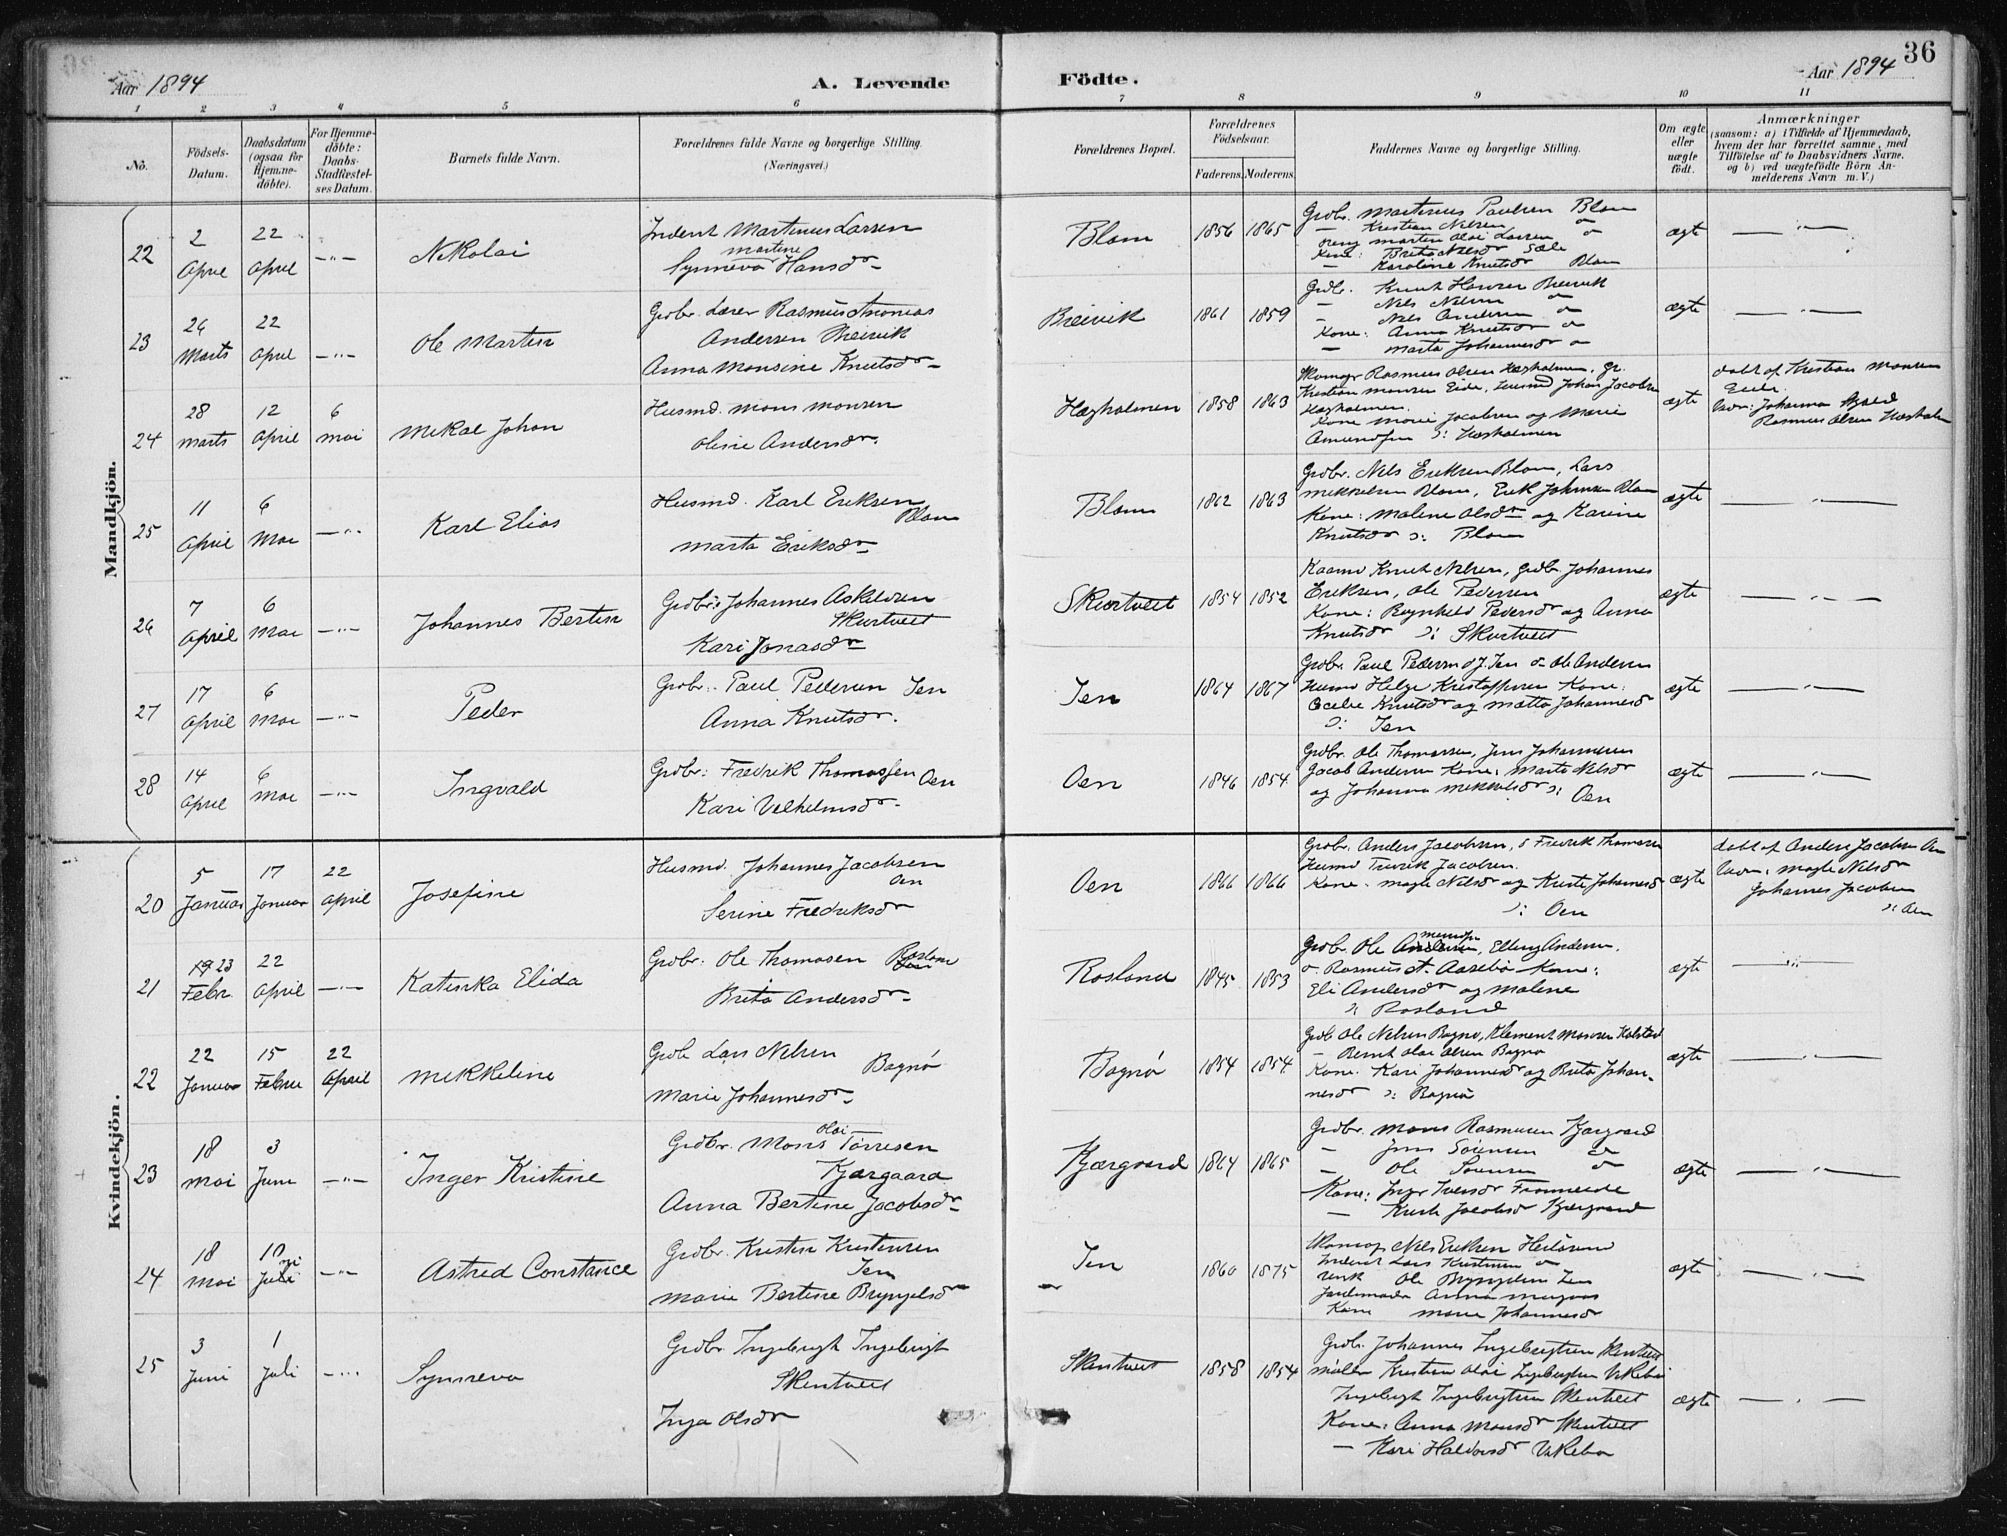 36
Aar 1894
A. Levende
Födte.
Aar 1894
1 2 3 4 5 6 7 8 9 10 11
No.
Födsels-
Datum.
Daabsdatum
(ogsaa for
Hjemme-
döbte).
For Hjemme-
döbte:
Daabs-
Stadfæstel-
ses Datum.
Barnets fulde Navn.
Forældrenes fulde Navne og borgerlige Stilling.
(Næringsvei.)
Forældrenes Bopæl.
Forældrenes
Födselsaar.
Faderens. Moderens.
Faddernes Navne og borgerlige Stilling.
Om ægte
eller
uægte
födt.
Anmærkninger
(saasom: a) i Tilfælde af Hjemmedaab,
hvem der har forrettet samme, med
Tilföielse af to Daabsvidners Navne,
og b) ved uægtefödte Börn An-
melderens Navn m. V.)
Mandkjön.
22
2
April
22
April
Nikolai
Inderst Martinus Larsen
Martine
Synneva Hansdr
Blom
1856 1865
Grdbr. Martinus Paulsen Blom
Kristian Nilsen
Dreng Martin Olai Larsen
Kone: Brita Nilsdr Sæle
Karoline Knutsdr Blom
ægte
23
26
Marts
22
April
Ole Martin
Grdbr. Lærer Rasmus Thomas
Andersen Breivik
Anna Monsine Knutsdr
Breivik
1861 1859
Grdbr. Knut Hansen Breivik
Nils Nilsen
Nils Andersen
Kone: Anna Knutsdr
Marta Johannesdr
ægte
24
28
Marts
12
April
6
Mai
Mikal Johan
Husmd. Mons Monsen
Oline Andersdr
Hægholmen
1858 1863
Rasmus Olsen Hægholmen, Gr.
Kristian Monsen Eide, Husmd Johan Jacobsen
Hægholmen.
Kone Marie Jacobsen og Marie
Amundsen ɔ: Hægholmen
ægte
døbt af Kristian Monsen
Eide.
Rasmus Olsen
25
11
April
6
Mai
Karl Elias
Husmd. Karl Eriksen
Blom
Marta Eriksdr
Blom
1862 1863
Grdbr. Nils Eriksen Blom, Lars
Mikkelsen Blom, Erik Johnsen Blom
Kone: Malene Olsdr og Karine
Knutsdr ɔ: Blom
ægte
26
7
April
6
Mai
Johannes Bertin
Grdbr: Johannes Askildsen
Skurtveit
Kari Jonasdr
Skurtveit
1854 1852
Knut Nilsen, Grdb. Johannes
Eriksen, Ole Pedersen
Kone: Ragnhild Pedersdr og Anna
Knutsdr ɔ: Skurtveit
ægte
27
17
April
6
Mai
Peder
Grdbr: Paul Pedersen Jen
Anna Knutsdr.
Jen
1864 1867
Grdbr. Paul Pedersen Jen Ole Andersen
Husmd Helge Kristoffersen Kone:
Knutsdr og Johannesdr
ɔ: Jen
ægte
28
14
April
6
Mai
Ingvald
Grdbr: Fredrik Thomassen Oen
Kari Velhelmsdr
Oen
1846 1854
Grdbr. Ole Thomassen, Jens Johannesen
Jacob Andersen Kone: Marta Nilsdr
og Johanna Mikkelsdr ɔ: Oen
ægte
Kvindekjön.
20
5
Januar
17
Januar
22
April
Josefine
Husmd. Johannes Jacobsen
Oen
Serine Fredriksdr
Oen
1866 1866
Grdbr. Anders Jacobsen, Fredrik Thomassen
Husmd Jacobsen.
Kone. Nilsdr og Johannesdr
ɔ: Oen
ægte
døbt af Anders Jacobsen Oen
Nilsdr
Johannes Jacobsen
ɔ: Oen
21
19 23
Febr.
22
April
Katinka Elida
Grdbr: Ole Thomasen Rosland
Brita Andersdr
Rosland
1845 1853
Grdbr. Ole Elling Andersen.
Rasmus Aasebø Kone:
Eli Andersdr og Malene
ɔ: Rosland
ægte
22
22
Januar
15
Febru
22
April
Mekkeline
Grdb Lars Nilsen
Bognø
Marie Johannesdr
Bognø
1854 1854
Grdb Ole Nilsen Bognø, Klement Monsen
Bernt Olai Olsen Bognø
Kone. Kari Johannesdr og Brita Johan-
nesdr ɔ: Bognø
ægte
23
18
Mai
3
Juni
Inger Kristine
Grdbr. Mons Olai Tørresen
Kjærgaard
Anna Bertine Jacobsdr
Kjærgaard
1864 1865
Grdbr. Mons Rasmusen Kjærgaard
Jens Sørensen
Ole Sørensen
Kone: Inger Iversdr Fromreide
Jacobsdr Kjærgaard
ægte
24
18
Mai
10
Juni
Astrid Constance
Grdbr. Kristen Kristensen
Jen
Marie Bertine Bryngelsdr
Jen
1860 1875
Nils Eriksen
Inderst Lars Kristensen
Ole Bryngelsen Jen
Jordemoder Anna
Kone Marie Johannesdr
ægte
25
3
Juni
1
Juli
Synneva
Grdbr. Ingebrigt Ingebrigt
Skurtveit
Inga Olsdr
Skurtveit
1858 1854
Grdb. Johannes Ingebrigtsen Skurtveit
Kristian Olai Ingebrigtsen
Ingebrigt Ingebrigtsen Skurtveit
Kone: Anna Monsdr Skurtveit
Kari Haldorsdr
ægte